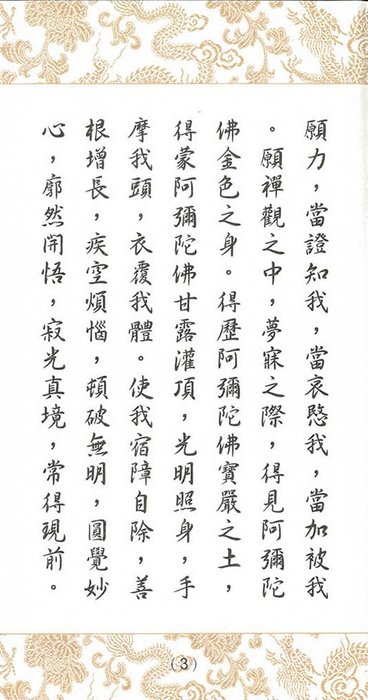 願力，當證知我，當哀愍我，當加被我
。願禪觀之中，夢寐之際，得見阿彌陀
佛金色之身。得歷阿彌陀佛寶嚴之土，
得蒙阿彌陀佛甘露灌頂，光明照身，手
摩我頭，衣覆我體。使我宿障自除，善
根增長，疾空煩惱，頓破無明，圓覺妙
心，廓然開悟，寂光真境，常得現前。
(3)